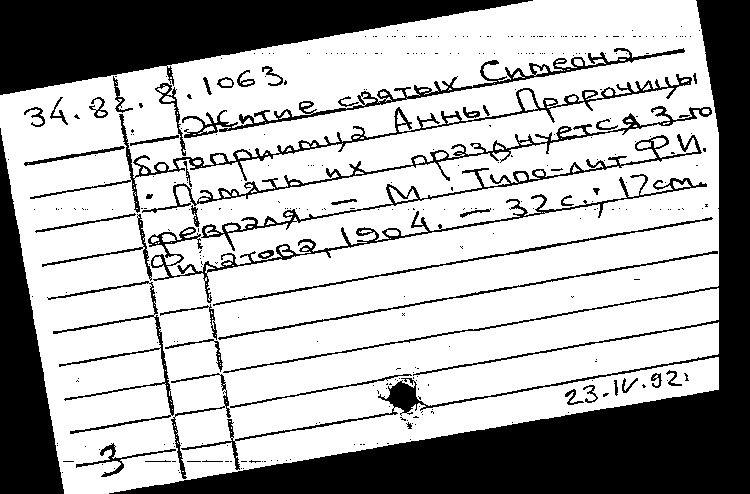 34.82.8.1063.
Житие святых Симеона
богоприимца Анны Пророчицы
. Память их празднуется 3-го
февраля. — М.: Типо-лит. Ф.И.
Филатова, 1904. — 32 с.; 17см.
23.IV.92.
3